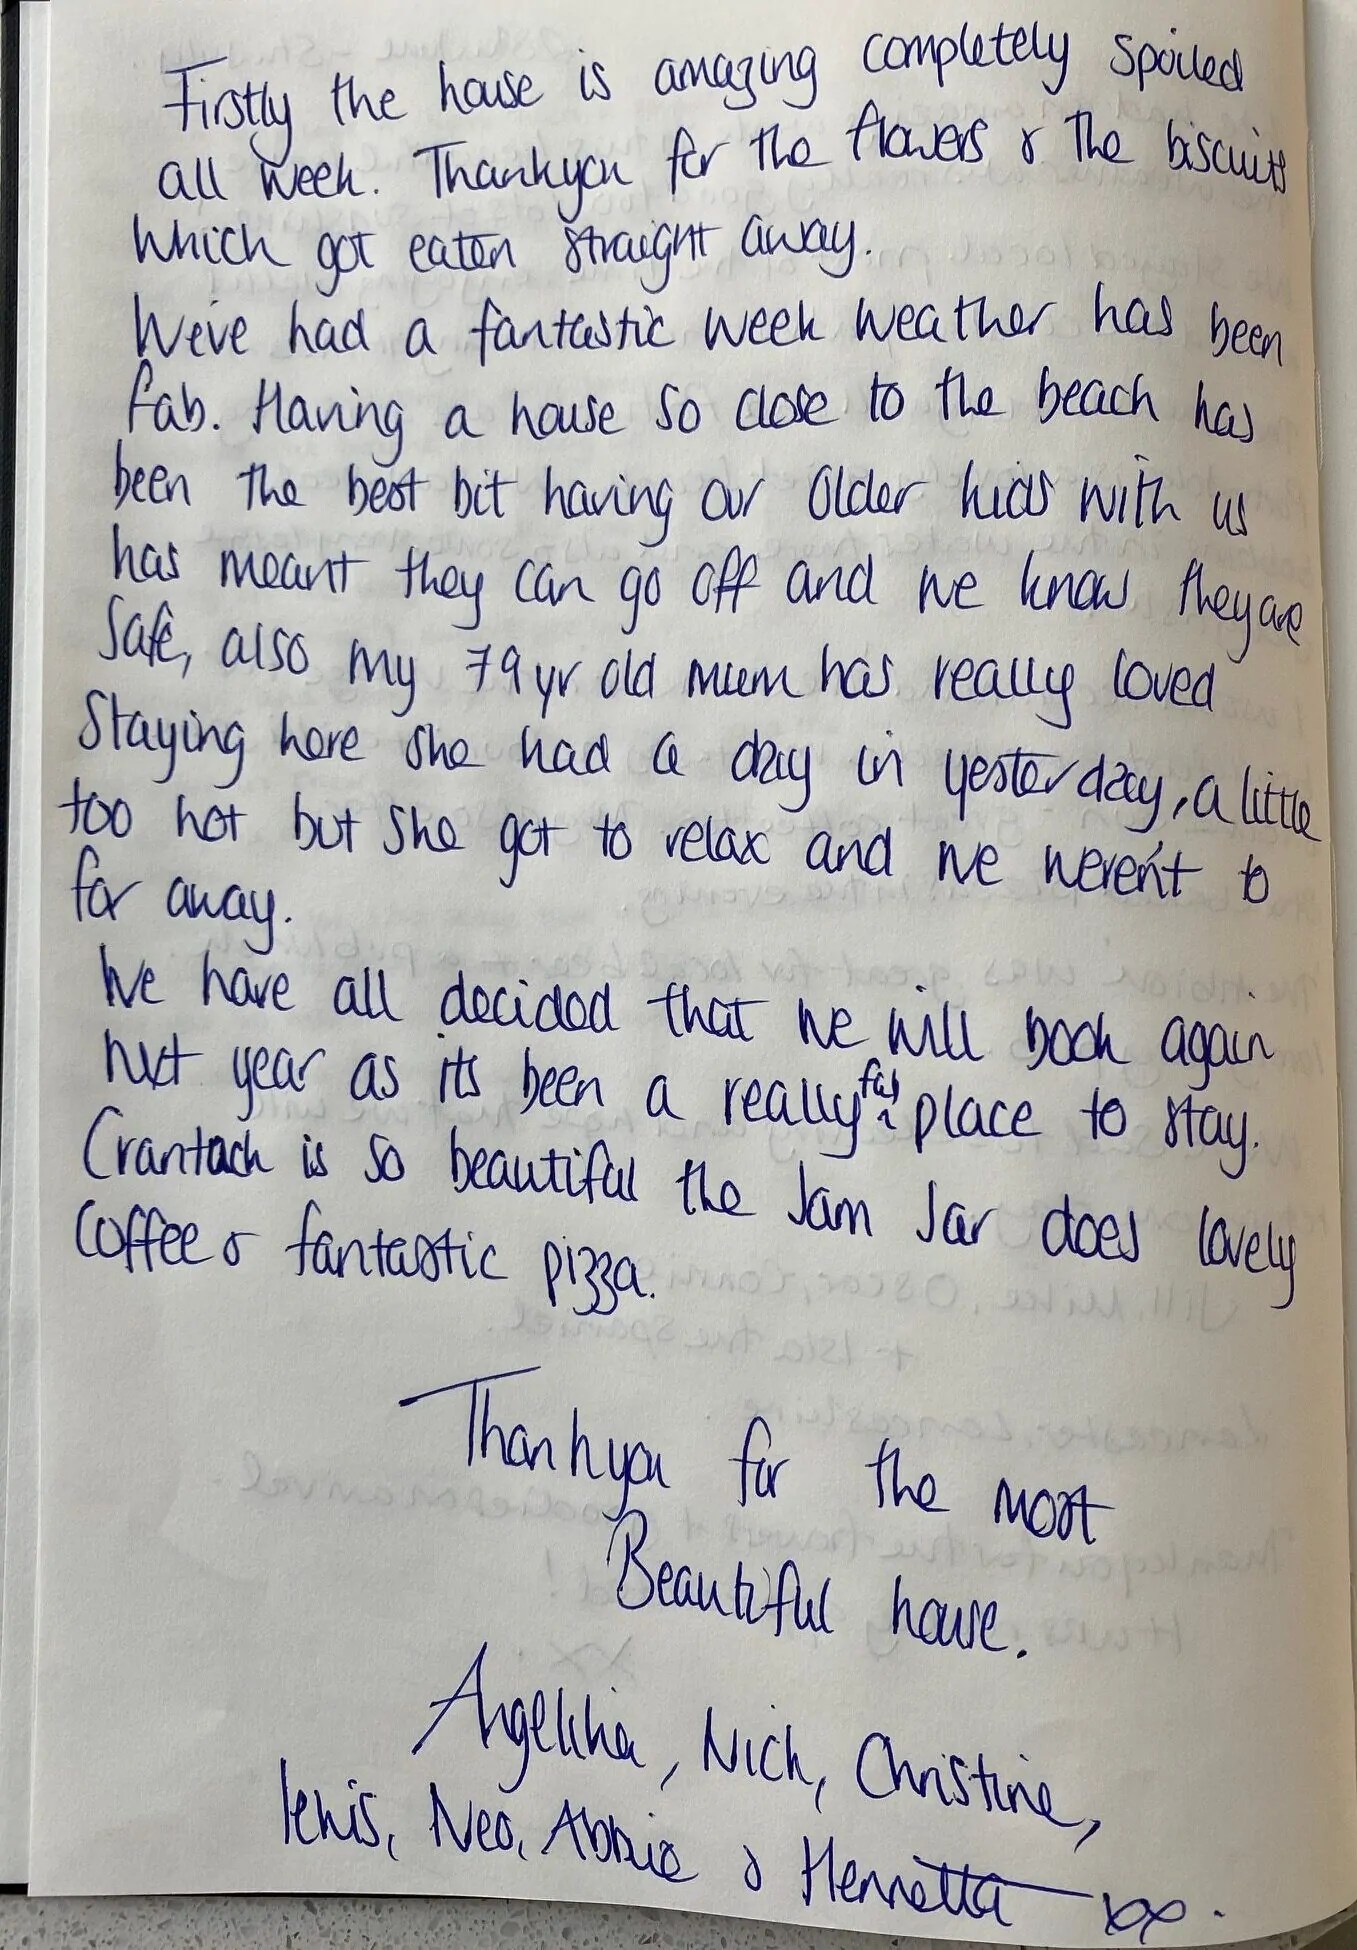 Firstly the house is amazing completely spoiled
all week. Thankyou for the flowers & the biscuits
which got eaten straight away.
We've had a fantastic week weather has been
fab. Having a house so close to the beach has
been the best bit having our older kids with us
has meant they can go off and we know they are
safe, also my 79 yr old mum has really loved
staying here she had a day in yesterday, a little
too hot but she got to relax and we weren't to
far away.
We have all decided that we will book again
next year as its been a really fab place to stay.
Crantock is so beautiful the Jam Jar does lovely
coffee & fantastic pizza.
Thankyou for the most
Beautiful house.
Angelika, Nick, Christine,
lewis, Neo, Abbie & Henrietta xx.